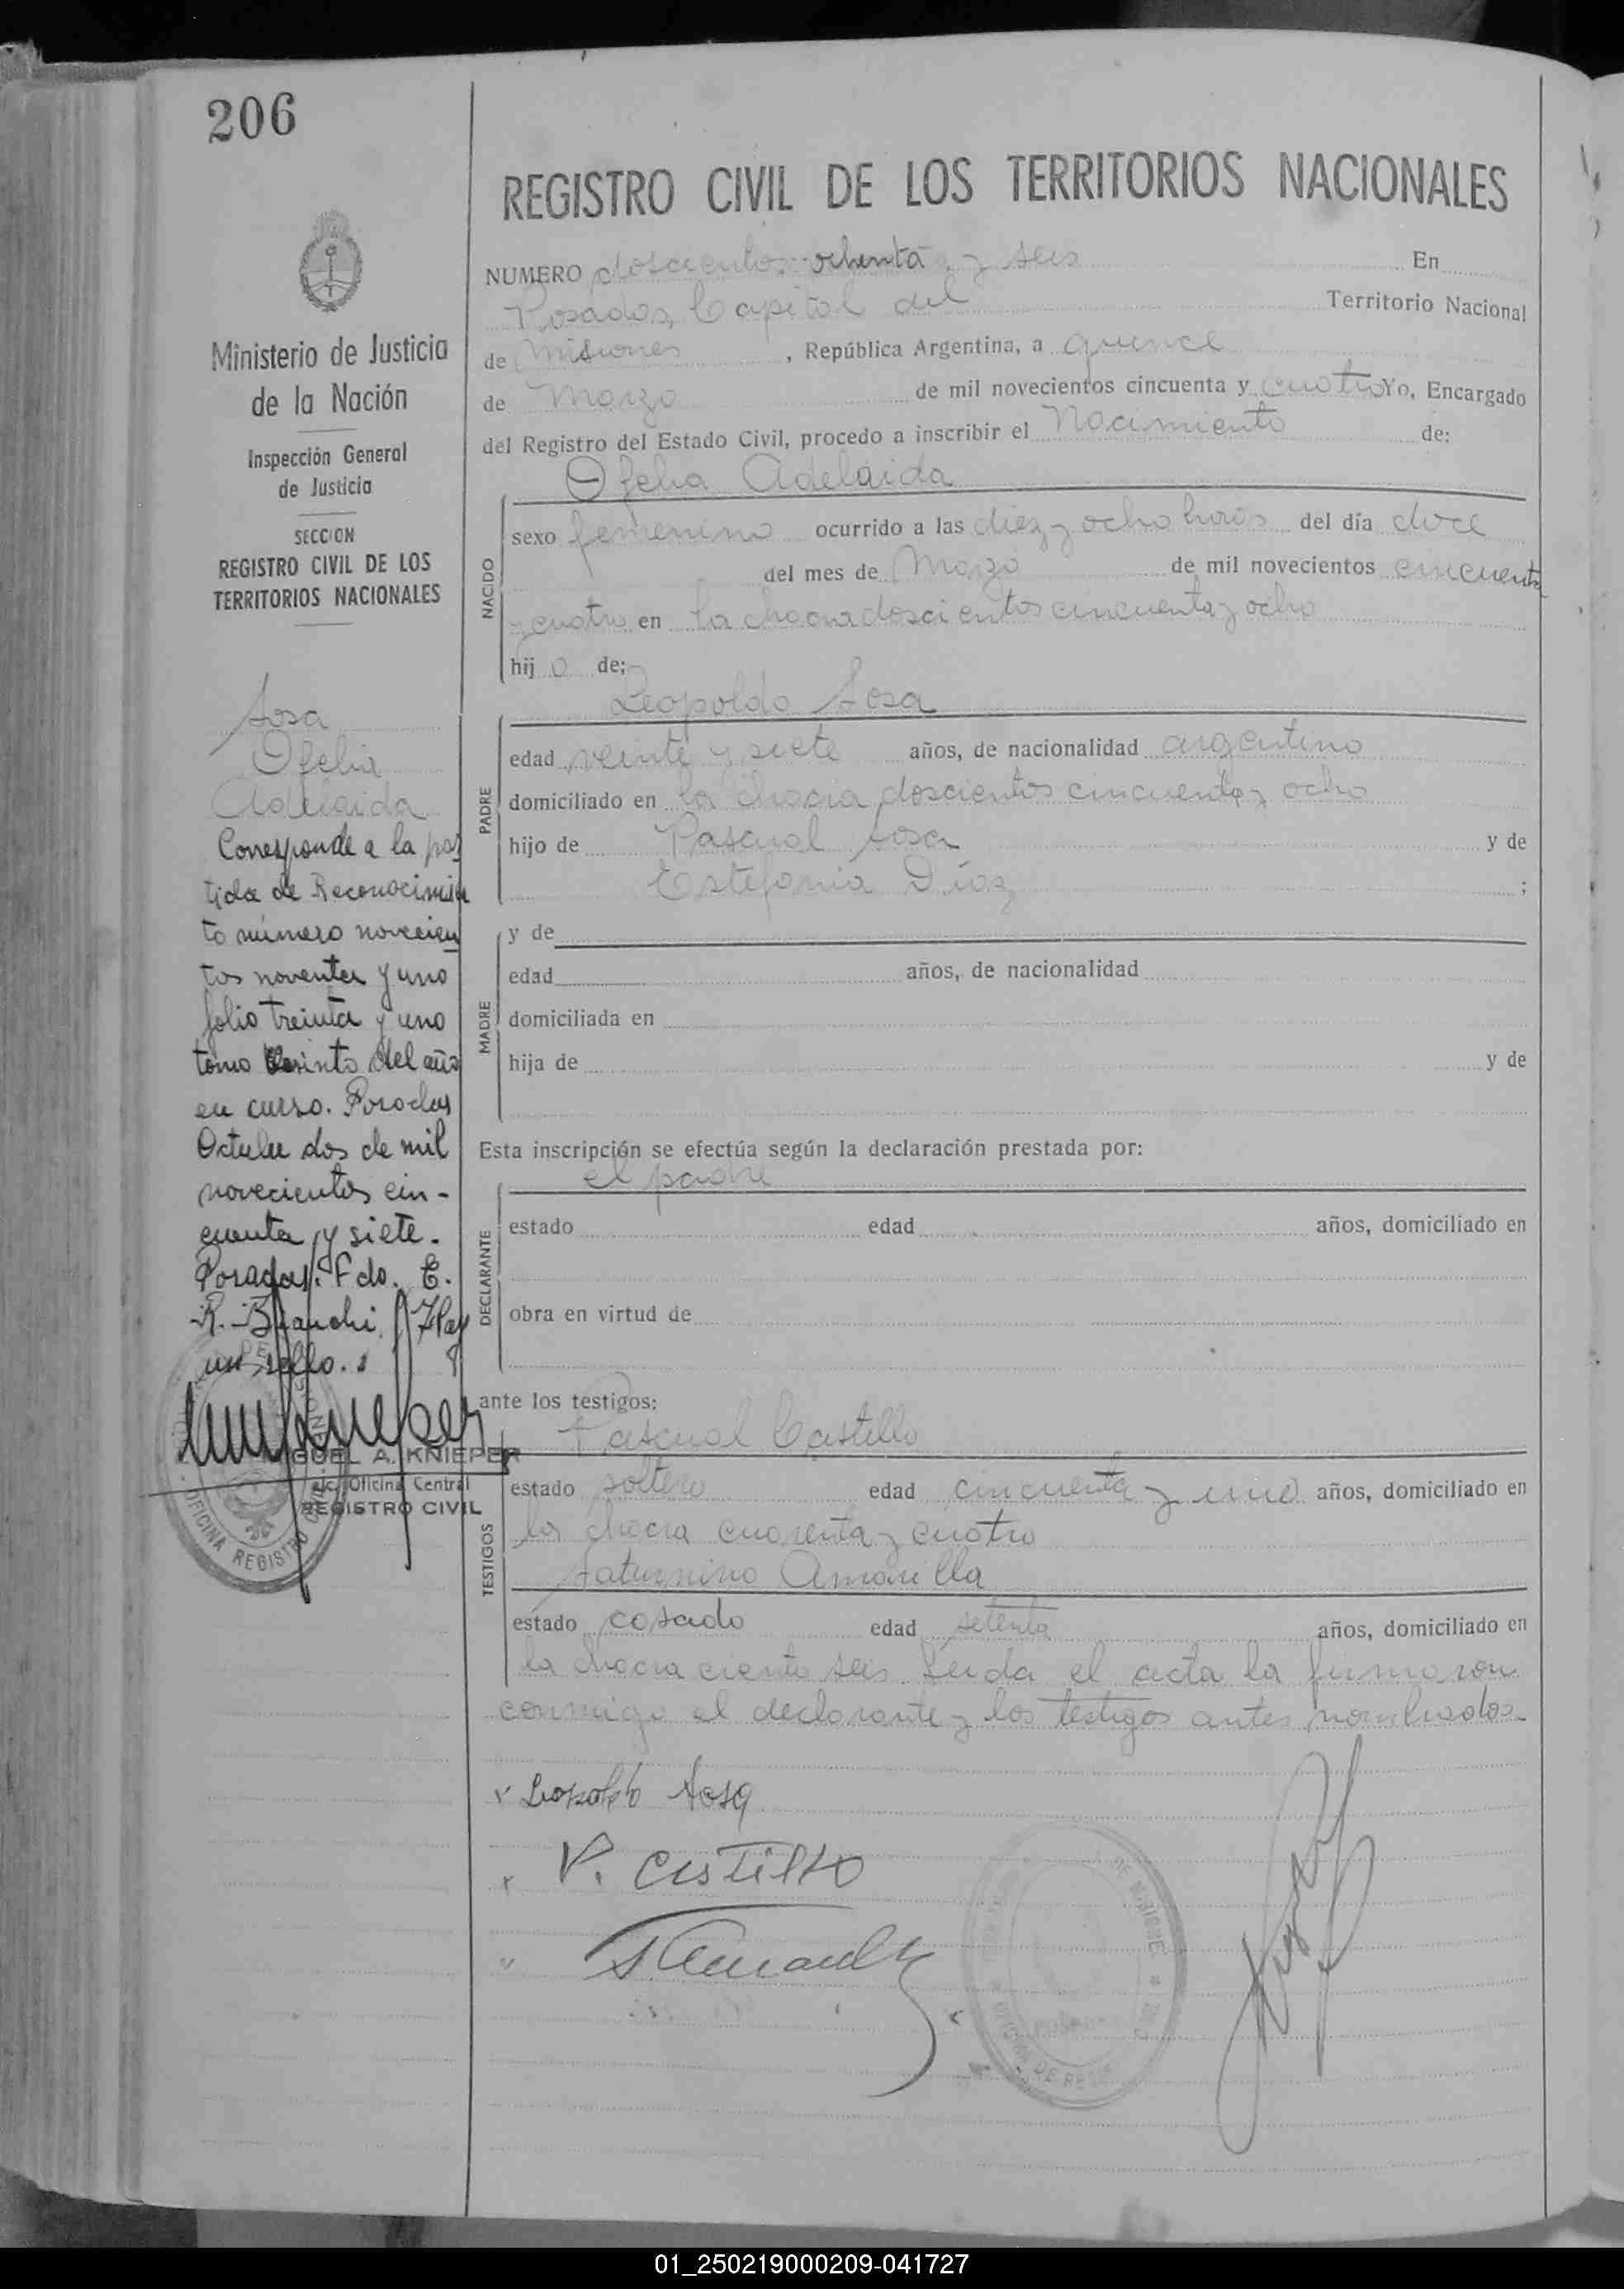 206
REGISTRO CIVIL DE LOS TERRITORIOS NACIONALES
Ministerio de Justicia
de la Nación
Inspección General
de Justicia
SECCION
REGISTRO CIVIL DE LOS
TERRITORIOS NACIONALES
Sosa
Ofelia
Adelaida
Corresponde a la par
tida de Reconocimien
to número novecien
tos noventa y uno
folio treinta y uno
tomo del año
en curso. Posadas
Octubre dos de mil
novecientos cin-
cuenta y siete.
Posadas. Fdo. E.
R. Bianchi. Hay
un sello.
GUEL A. KNIEPER
Oficina Central
REGISTRO CIVIL
OFICINA REGISTRO CIVIL
NUMERO doscientos ochenta y seis En
Posadas, Capital del Territorio Nacional
de Misiones, República Argentina, a quince
de Marzo de mil novecientos cincuenta y cuatro Yo, Encargado
del Registro del Estado Civil, procedo a inscribir el Nacimiento de:
Ofelia Adelaida
NACIDO
sexo femenino ocurrido a las diez y ocho horas del día doce
del mes de Marzo de mil novecientos cincuenta
y cuatro en la chacra doscientos cincuenta y ocho
hij a de;
Leopoldo Sosa
PADRE
edad veinte y siete años, de nacionalidad argentino
domiciliado en la chacra doscientos cincuenta y ocho
hijo de Pascual Sosa y de
Estefania Díaz ;
MADRE
y de
edad años, de nacionalidad
domiciliada en
hija de y de
Esta inscripción se efectúa según la declaración prestada por:
el padre
DECLARANTE
estado edad años, domiciliado en
obra en virtud de
ante los testigos:
Pascual Castillo
TESTIGOS
estado soltero edad cincuenta y uno años, domiciliado en
la chacra cuarenta y cuatro
Saturnino Amarilla
estado casado edad setenta años, domiciliado en
la chacra ciento seis. Leida el acta la firmaron
conmigo el declarante y los testigos antes nombrados.
Leopoldo Sosa
P. Castillo
DE MISIONES
OFICINA DE REG
01_250219000209-041727